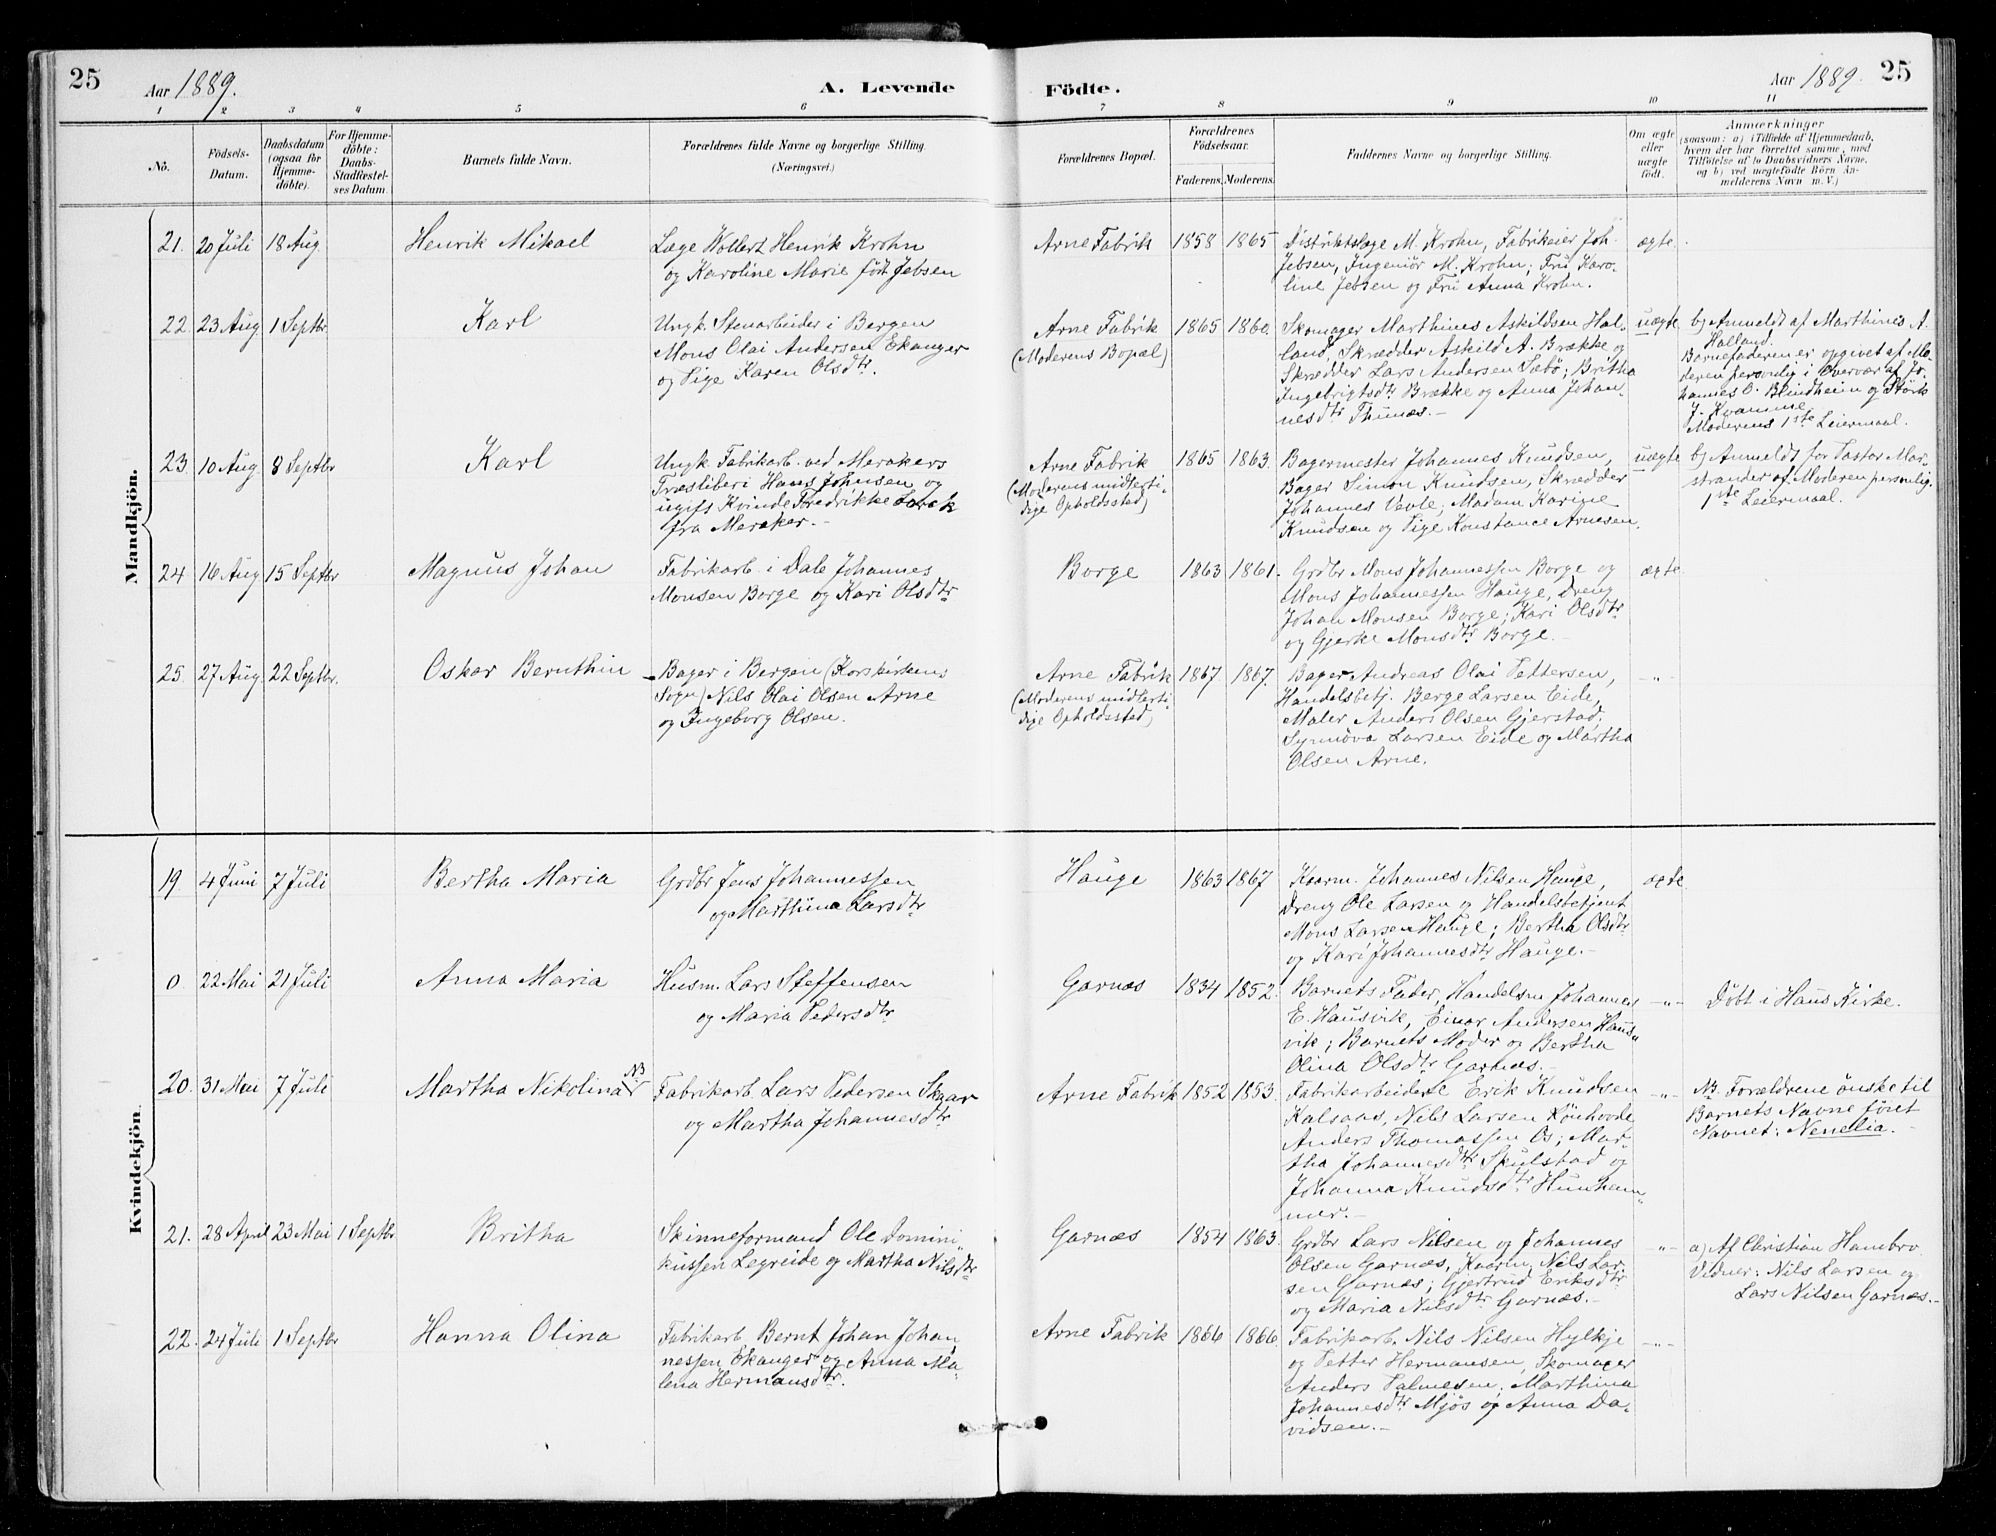 25
Aar 1889.
A. Levende
Födte.
Aar 1889.
25
1 2 3 4 5 6 7 8 9 10 11
No.
Födsels-
Datum.
Daabsdatum
(ogsaa for
Hjemme-
döbte).
For Hjemme-
döbte:
Daabs-
Stadfæstel-
ses Datum.
Barnets fulde Navn.
Forældrenes fulde Navne og borgerlige Stilling.
(Næringsvei.)
Forældrenes Bopæl.
Forældrenes
Födselsaar.
Faderens. Moderens.
Faddernes Navne og borgerlige Stilling.
Om ægte
eller
uægte
födt.
Anmærkninger
(saasom: a) i Tilfælde af Hjemmedaab,
hvem der har forrettet samme, med
Tilföielse af to Daabsvidners Navne,
og b) ved uægtefödte Börn An-
melderens Navn m. V.)
Mandkjön.
21. 20 Juli 18 Aug.
Henrik Mikael
Læge Wollert Henrik Krohn
og Karoline Marie født Jebsen
Arne Fabrik
1858 1865
Distriktslæge M. Krohn, Fabrikeier Joh.
Jebsen, Ingeniør M. Krohn; Fru Karo-
line Jebsen og Fru Anna Krohn.
ægte
22. 23 Aug. 1 Septbr.
Karl
Ungk. Stenarbeider i Bergen
Mons Olai Andersen Ekanger
og Pige Karen Olsdtr.
Arne Fabrik
(Moderens Bopæl)
1865 1860.
Skomager Marthines Askildsen Hal-
land, Skrædder Askild A. Brække og
Skrædder Lars Andersen Sæbø; Britha
Ingebrigtsdtr Brække og Anna Johan-
nesdtr Thunæs.-
uægte
b) Anmeldt af Marthines A.
Halland.
Barnefaderen er opgivet af Mo-
deren personlig i Overvær af Jo-
hannes O. Blindheim og Størk
J. Kvamme
Moderens 1ste Leiermaal.
23. 10 Aug. 8 Septbr
Karl
Ungk. Fabrikarb. ved Merakers
Træsliberi Hans Johnsen og
ugift Kvinde Fredrikke Larsk
fra Meraker.-
Arne Fabrik
(Moderens midlerti-
dige Opholdssted)
1865 1863.
Bagermester Johannes Knudsen,
Bager Simon Knudsen, Skrædder
Johannes Vevle; Madam Karine
Knudsen og Pige Konstance Arnesen.
uægte
b) Anmeldt for Pastor Mar-
strander af Moderen personlig.
1ste Leiermaal.
24 16 Aug 15 Septbr
Magnus Johan
Fabrikarb. i Dale Johannes
Monsen Borge og Kari Olsdtr
Borge
1863 1861.
Grdbr Mons Johannessen Borge og
Mons Johannessen Hauge, Dreng
Johan Monsen Borge; Kari Olsdtr
og Gjerke Monsdtr Borge.-
ægte
25. 27 Aug. 22 Septbr.
Oskar Bernthin
Bager i Bergen (Korskirkens
Sogn) Nils Olai Olsen Arne
og Ingeborg Olsen.
Arne Fabrik
(Moderens midlerti-
dige Opholdssted)
1867. 1867.
Bager Andreas Olai Pettersen,
Handelsbetj. Berge Larsen Eide,
Maler Anders Olsen Gjerstad;
Synnøva Larsen Eide og Martha
Olsen Arne.
-"-
Kvindekjön.
19. 4 Juni 7 Juli
Bertha Maria
Grdbr Jens Johannessen
og Marthina Larsdtr
Hauge
1863 1867
Kaarm. Johannes Nilsen Hauge,
Dreng Ole Larsen og Handelsbetjent
Mons Larsen Hauge; Bertha Olsdtr
og Kari Johannesdtr Hauge.-
ægte
0. 22 Mai 21 Juli
Anna Maria
Husm. Lars Steffensen
og Maria Pedersdtr
Garnæs
1834 1852.
Barnets Fader, Handelsm Johannes
E. Hausvik, Einar Andersen Haus-
vik; Barnets Moder og Bertha
Olina Olsdtr Garnæs.-
-"-
Döbt i Haus Kirke.
20. 31 Mai 7 Juli
Martha Nikolina NB
Fabrikarb. Lars Pedersen Skaar
og Martha Johannesdtr
Arne Fabrik
1852 1853.
Fabrikarbeidere Erik Knudsen
Kalsaas, Nils Larsen Rönhovde
Anders Thomassen Os; Mar-
tha Johannesdtr Spulstad og
Johanna Knudsdtr Hunham-
mer.-
-"-
NB. Forældrene ønske til
Barnets Navne föiet
Navnet: Nenelia.-
21. 28 April 23 Mai 1 Septbr
Britha
Skinneformand Ole Domini-
kussen Legreide og Martha Nilsdtr
Garnæs
1854 1863.
Grdbr Lars Nilsen og Johannes
Olsen Garnæs, Kaarm. Nils Lar-
sen Garnæs; Gjertrud Eriksdtr
og Maria Nilsdtr Garnæs.-
-"-
a) Af Christian Hambro.
Vidner: Nils Larsen og
Lars Nilsen Garnæs.-
22. 24 Juli 1 Septbr
Hanna Olina
Fabrikarb. Bernt Johan Johan-
nessen Ekanger og Anna Ma-
lena Hermansdtr.
Arne Fabrik
1866 1866.
Fabrikarb. Nils Nilsen Hylkje
og Petter Hermansen, Skomager
Anders Palmesen; Marthina
Johannesdtr Mjøs og Anna Da-
vidsen.-
-"-